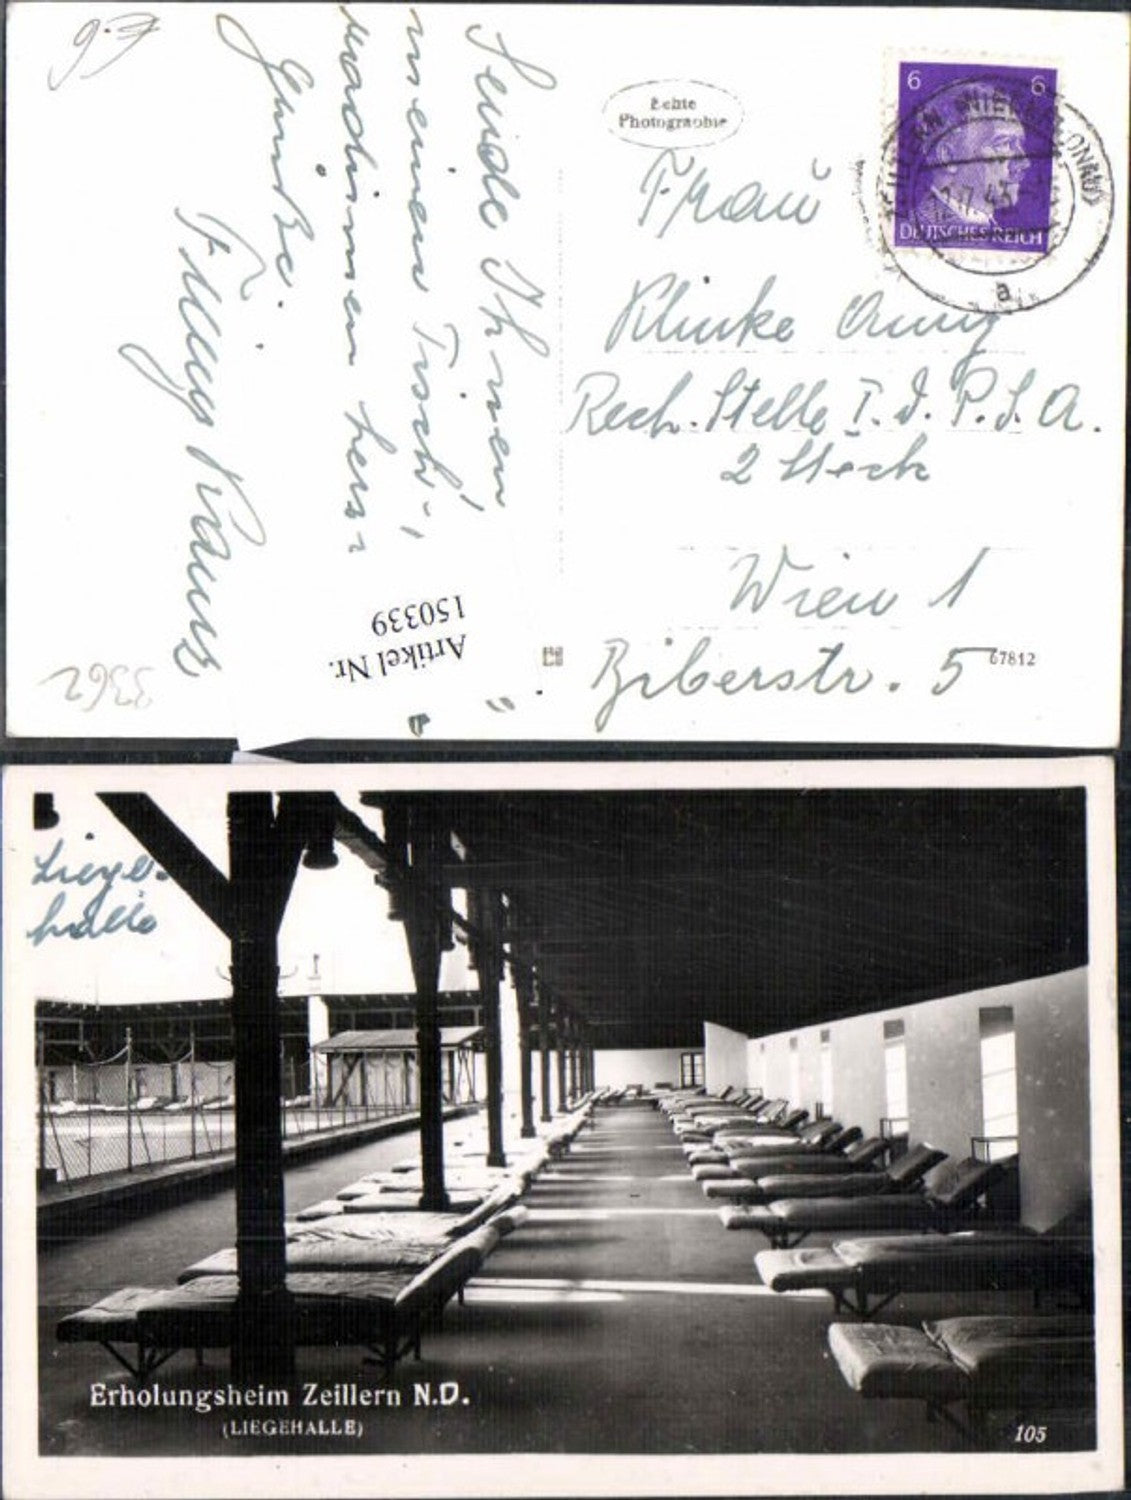 R.G
Sende Ihnen
meinen Tisch-,
nachinnen herz-
Grüße.
Filly Kraus
3362
Artikel Nr.
150339
Echte
Photographie
6 6
DEUTSCHES REICH
12.7.43
a
Frau
Klinke Anny
Rech. Stelle I. d. P. S. A.
2 Stock
Wien 1
Biberstr. 5
67812
Liege-
halle
Erholungsheim Zeillern N.D.
(LIEGEHALLE)
105